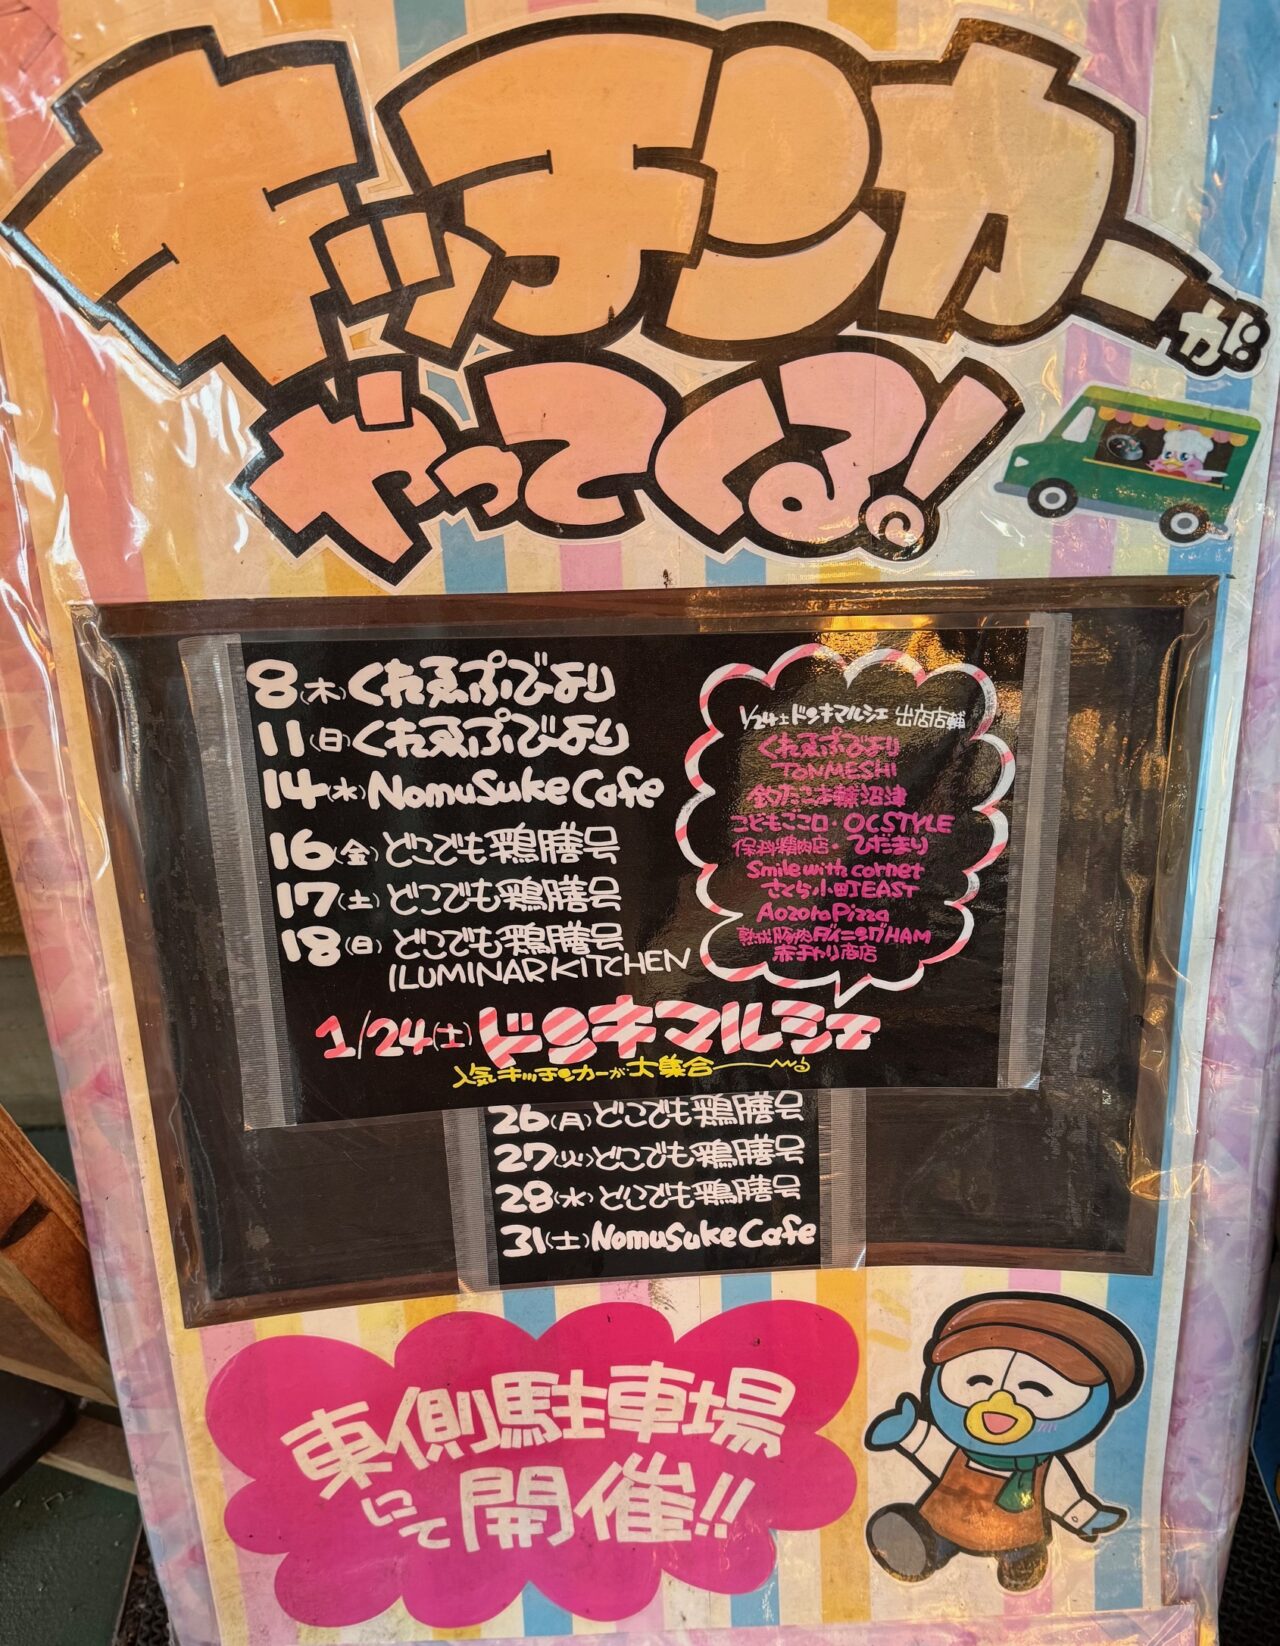 キッチンカーが
やってくる。!
8(木)くれゑぷびより
11(日)くれゑぷびより
14(水)NomuSukeCafe
16(金)どこでも鶏膳号
17(土)どこでも鶏膳号
18(日)どこでも鶏膳号
ILUMINARKITCHEN
1/24(土)ドンキマルシェ
人気キッチンカーが大集合
1/24土ドンキマルシェ 出店店舗
くれゑぷびより
TONMESHI
釣たこ本舗沼津
こどもごころ・OCSTYLE
保科精肉店・ひだまり
Smile with cornet
さくら小町EAST
AozoraPizza
熟成豚肉ダイニングHAM
赤チャリ商店
26(月)どこでも鶏膳号
27(火)どこでも鶏膳号
28(水)どこでも鶏膳号
31(土)NomuSukeCafe
東側駐車場
にて開催!!